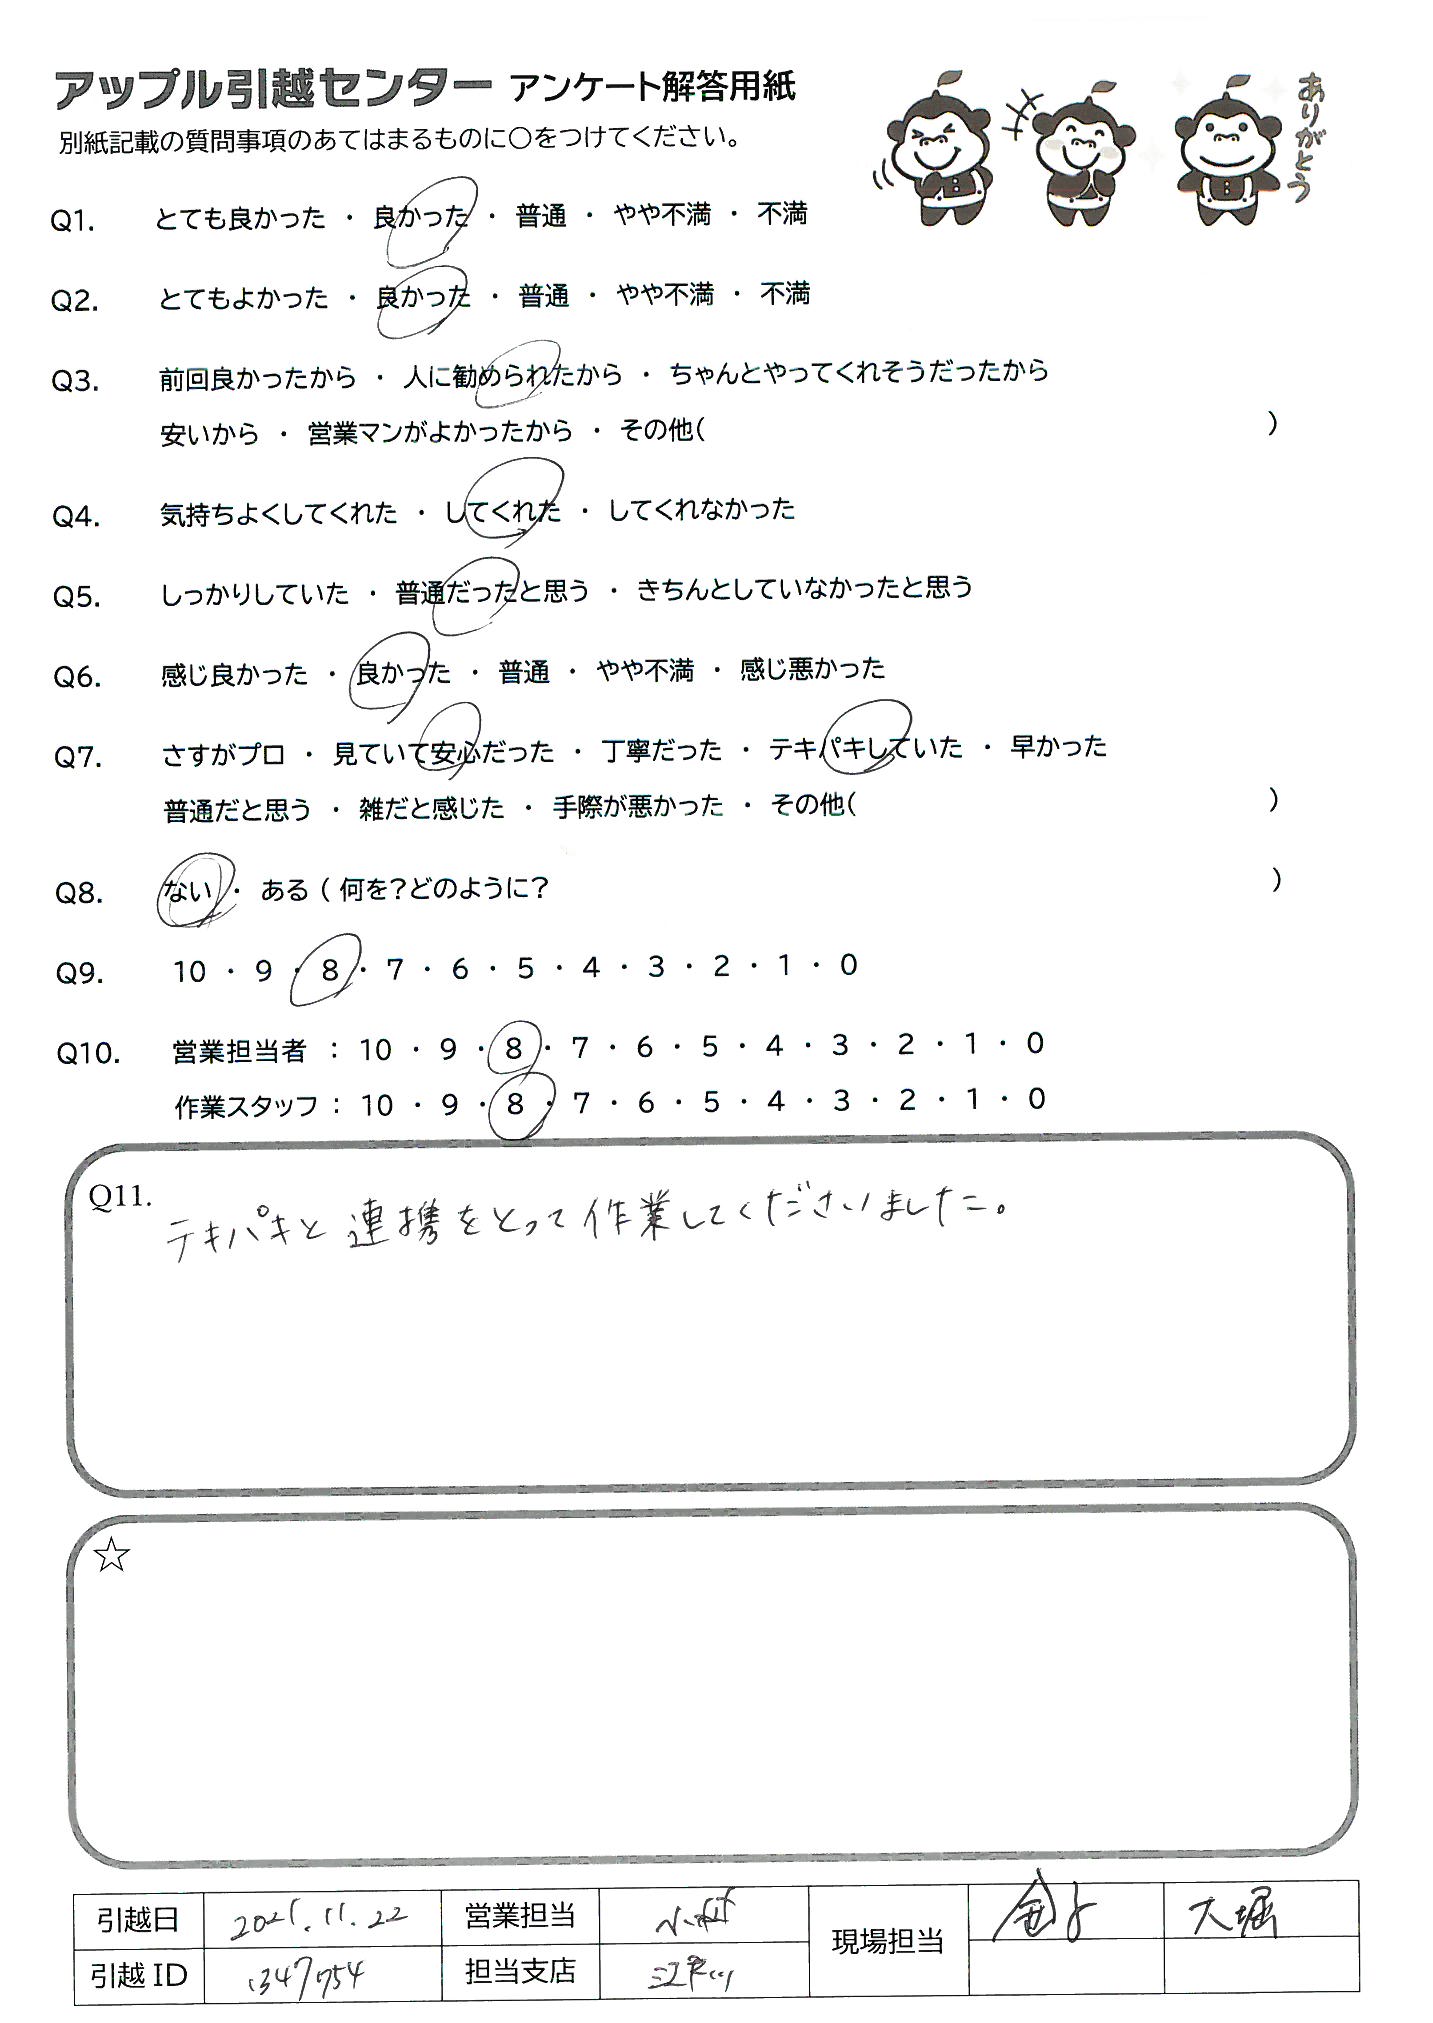 アップル引越センター アンケート解答用紙
別紙記載の質問事項のあてはまるものに〇をつけてください。
ありがとう
Q1. とても良かった ・ 良かった ・ 普通 ・ やや不満 ・ 不満
Q2. とてもよかった ・ 良かった ・ 普通 ・ やや不満 ・ 不満
Q3. 前回良かったから ・ 人に勧められたから ・ ちゃんとやってくれそうだったから
安いから ・ 営業マンがよかったから ・ その他( )
Q4. 気持ちよくしてくれた ・ してくれた ・ してくれなかった
Q5. しっかりしていた ・ 普通だったと思う ・ きちんとしていなかったと思う
Q6. 感じ良かった ・ 良かった ・ 普通 ・ やや不満 ・ 感じ悪かった
Q7. さすがプロ ・ 見ていて安心だった ・ 丁寧だった ・ テキパキしていた ・ 早かった
普通だと思う ・ 雑だと感じた ・ 手際が悪かった ・ その他( )
Q8. ない ・ ある ( 何を?どのように? )
Q9. 10 ・ 9 ・ 8 ・ 7 ・ 6 ・ 5 ・ 4 ・ 3 ・ 2 ・ 1 ・ 0
Q10. 営業担当者 : 10 ・ 9 ・ 8 ・ 7 ・ 6 ・ 5 ・ 4 ・ 3 ・ 2 ・ 1 ・ 0
作業スタッフ : 10 ・ 9 ・ 8 ・ 7 ・ 6 ・ 5 ・ 4 ・ 3 ・ 2 ・ 1 ・ 0
Q11. テキパキと連携をとって作業してくださいました。
☆
引越日 2025.11.22 営業担当 現場担当 金子 大堀
引越ID 1347754 担当支店